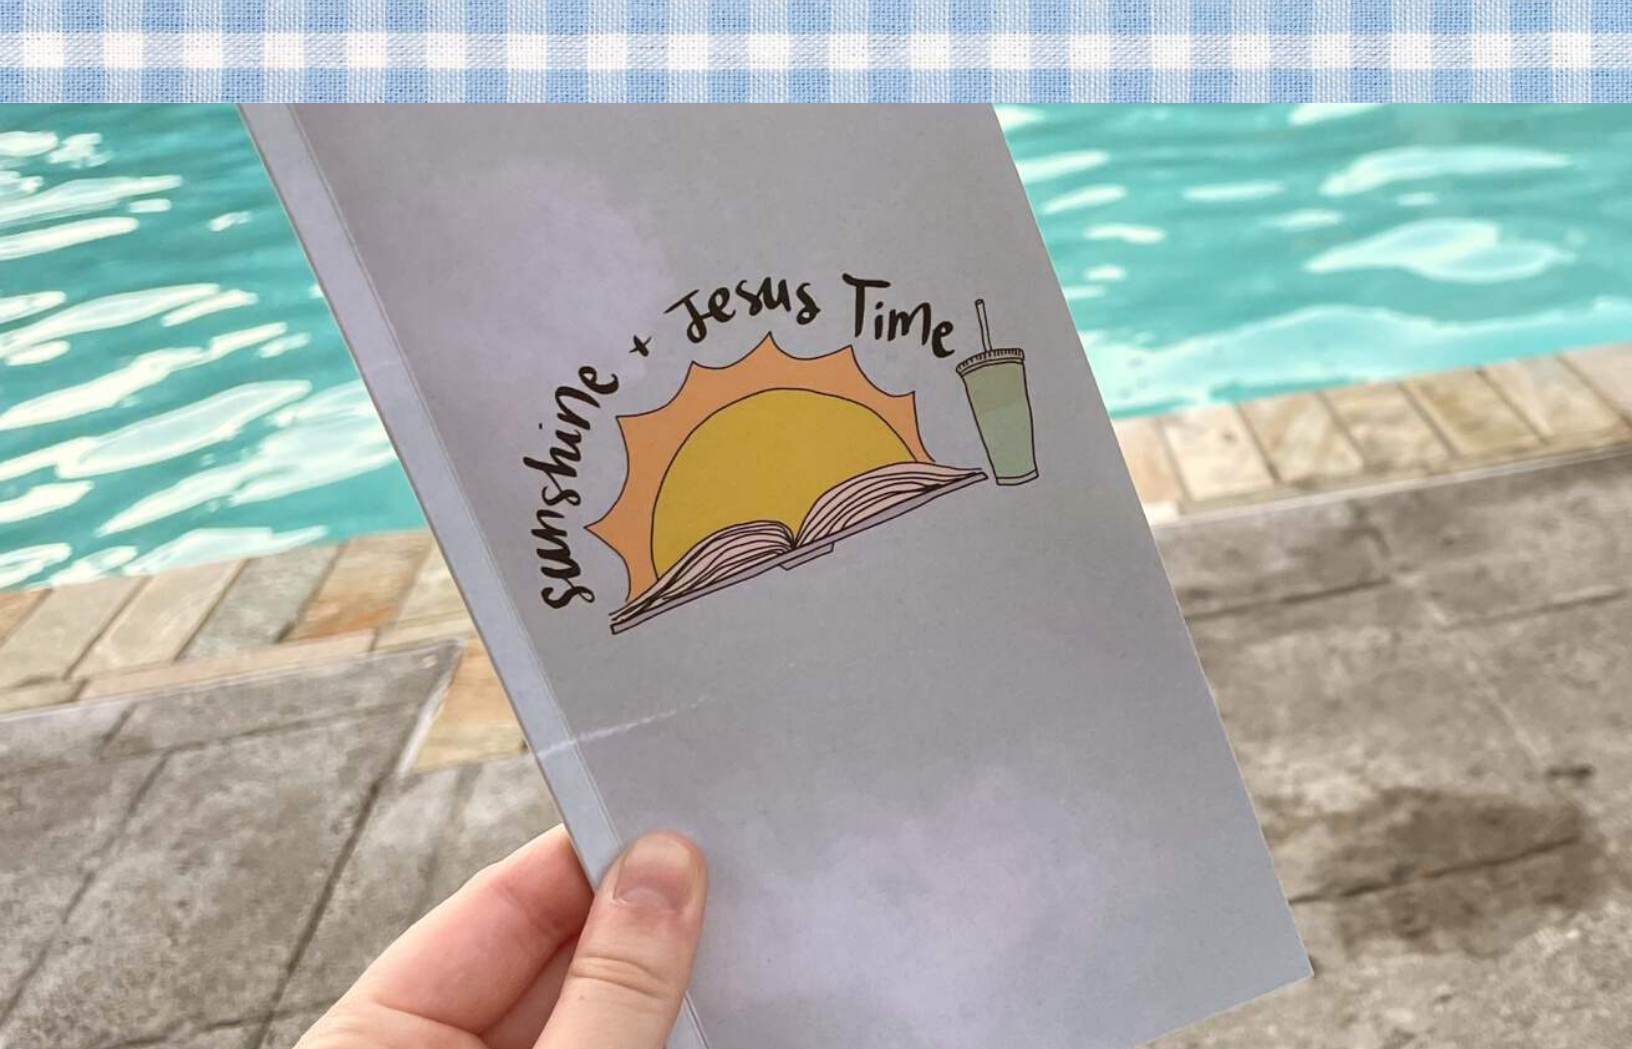 sunshine + Jesus Time